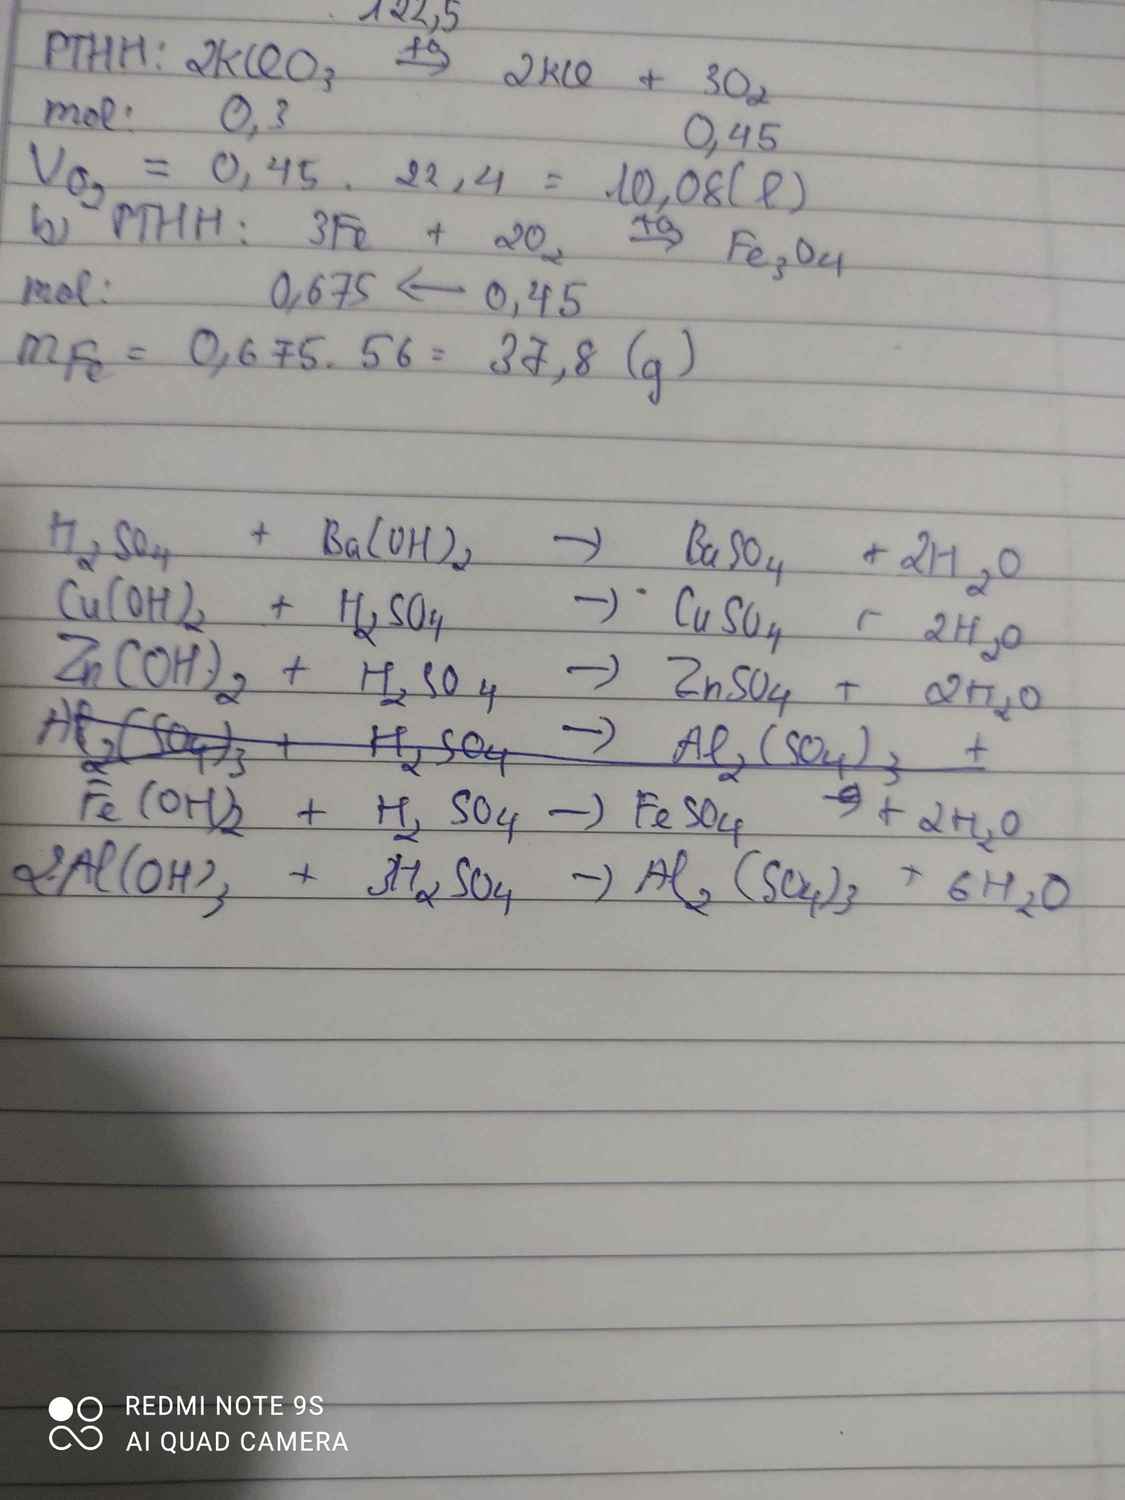 122,5
PTHH: 2KClO₃ →(t°) 2KCl + 3O₂
mol: 0,3 0,45
V O₂ = 0,45 . 22,4 = 10,08 (l)
b) PTHH: 3Fe + 2O₂ →(t°) Fe₃O₄
mol: 0,675 ← 0,45
mFe = 0,675. 56 = 37,8 (g)
H₂SO₄ + Ba(OH)₂ → BaSO₄ + 2H₂O
Cu(OH)₂ + H₂SO₄ → CuSO₄ + 2H₂O
Zn(OH)₂ + H₂SO₄ → ZnSO₄ + 2H₂O
Al₂(SO₄)₃ + H₂SO₄ → Al₂(SO₄)₃ +
Fe(OH)₂ + H₂SO₄ → FeSO₄ + 2H₂O
2Al(OH)₃ + 3H₂SO₄ → Al₂(SO₄)₃ + 6H₂O
REDMI NOTE 9S
AI QUAD CAMERA